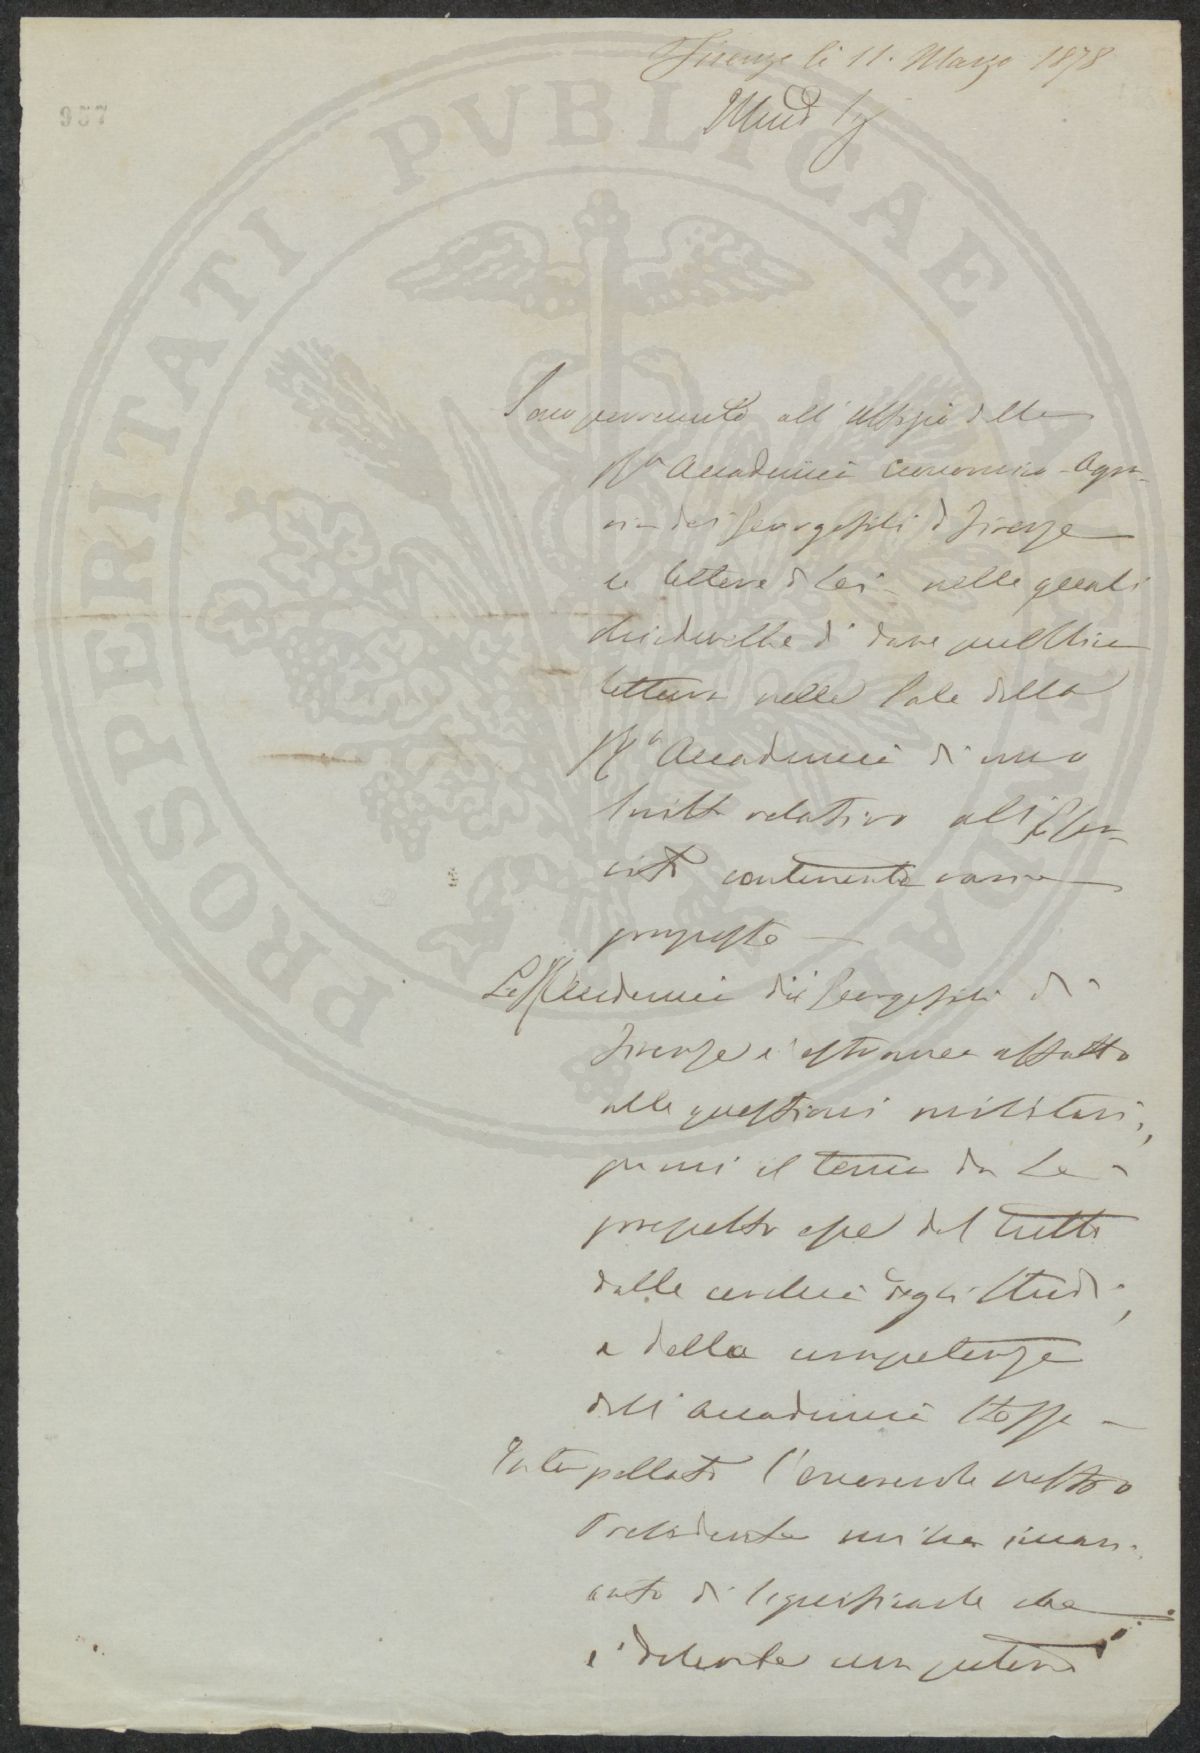 Firenze li 11. Marzo 1878
957
Illmo Sig
PROSPERITATI PVBLICAE AVGENDAE
Sono pervenute all' Uffizio della
Ra Accademia economico-Agra-
ria dei Georgofili di Firenze
le lettere di Lei nelle quali
chiederebbe di dare pubblica
lettura nelle Sale della
Ra Accademia di uno
scritto relativo all' Eser-
cito contenente varie
proposte —
La R Accademia dei Georgofili di
Firenze è estranea affatto
alle questioni militari,
per cui il tema da Lei
proposto esce del tutto
dalla cerchia degli Studi,
e dalla competenza
dell' Accademia stessa —
Interpellato l'onorevole nostro
Presidente mi ha incari-
cato di significarle che
è dolente non potere